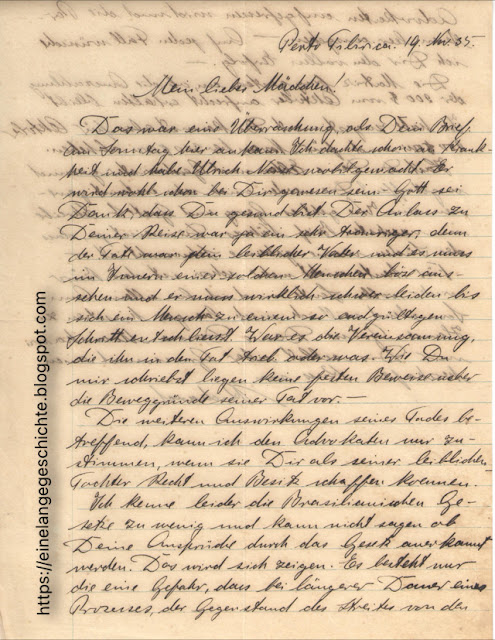 Porto Tibiriça. 19. Nov. 35.
Mein lieber Mädchen!
Das war eine Überraschung, als Dein Brief
am Sonntag hier ankam. Ich dachte schon an Krank-
heit und habe Ulrich Neise mobil gemacht. Er
wird wohl schon bei Dir gewesen sein. Gott sei
Dank, dass Du gesund bist. Der Anlass zu
Deiner Reise war ja ein sehr trauriger, denn
der Tote war dein leiblicher Vater und es muss
im Innern eines solchen Menschen böse aus-
sehen und er muss wirklich schwer leiden bis
sich ein Mensch zu einem so endgültigen
Schritt entschliesst. War es die Vereinsamung,
die ihn in den Tod trieb oder was. Wie Du
mir schriebst liegen keine festen Beweise ueber
die Beweggründe seiner Tat vor. —
Die weiteren Auswirkungen seines Todes be-
treffend, kann ich den Advokaten nur zu-
stimmen, wenn sie Dir als seiner leiblichen
Tochter Recht und Besitz schaffen koennen.
Ich kenne leider die Brasilianischen Ge-
setze zu wenig und kann nicht sagen ob
Deine Ansprüche durch das Gesetz anerkannt
werden. Das wird sich zeigen. Es besteht nur
die eine Gefahr, dass bei längerer Dauer eines
Prozesses, der Gegenstand des Streites von den
https://einelangegeschichte.blogspot.com